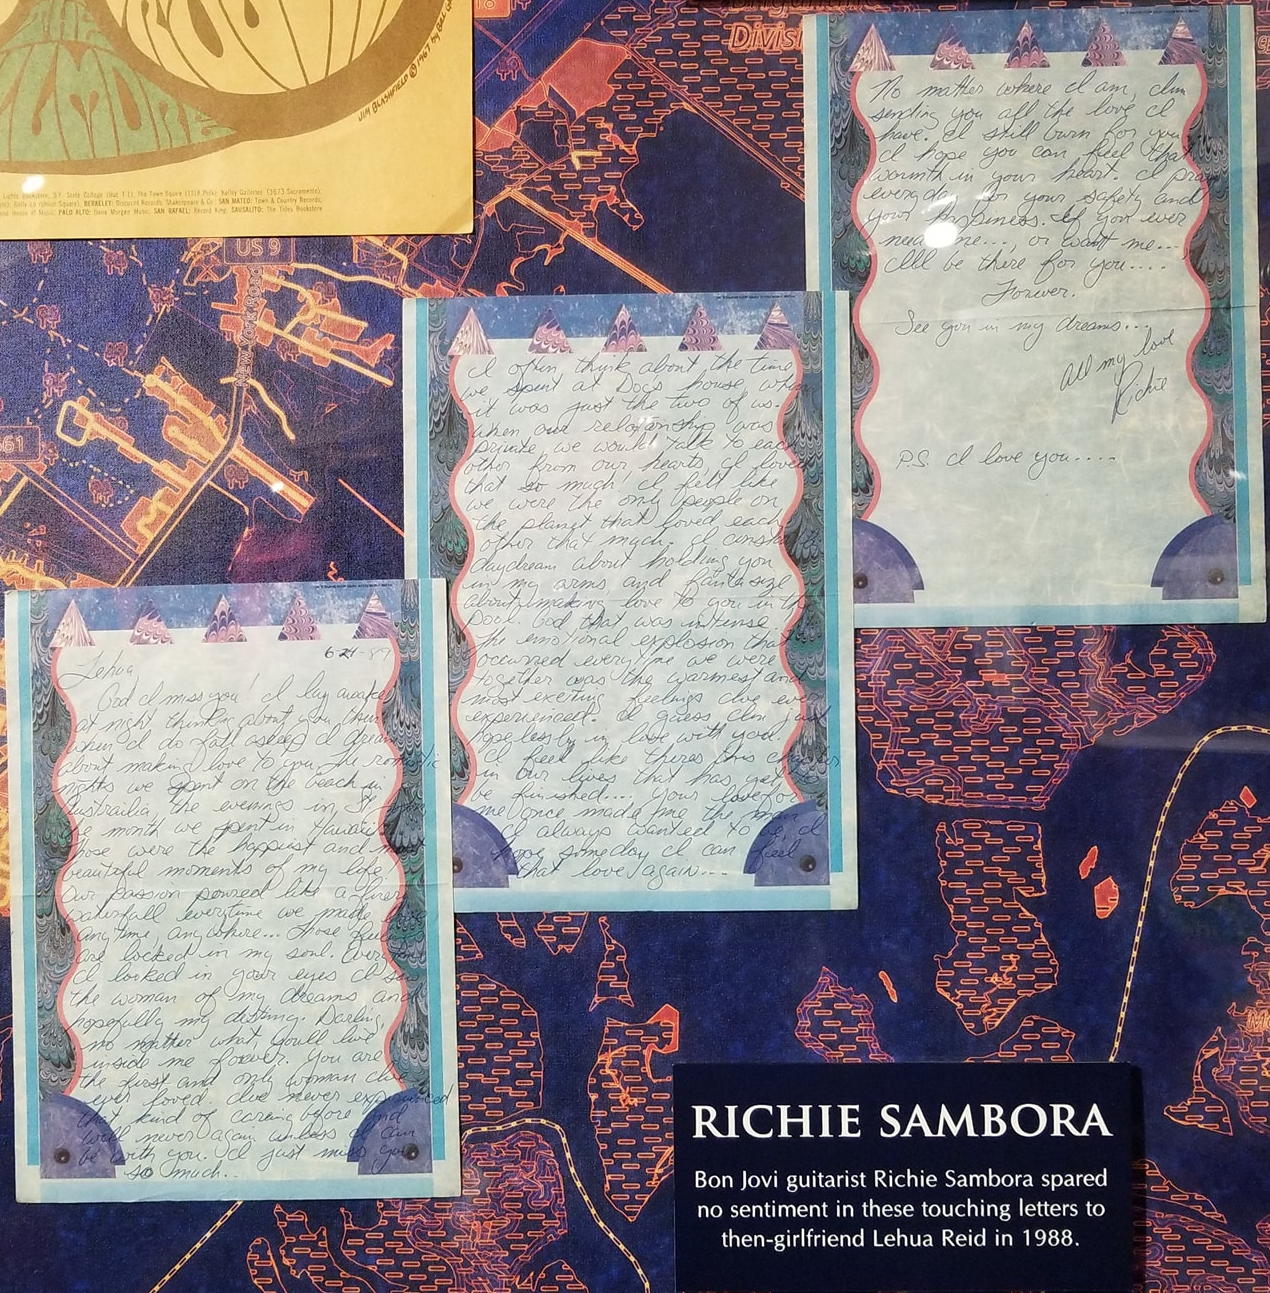 THE
FILLMORE
JIM BLASHFIELD © 1967 by BILL
Lights Bookstore, S.F. State College (Hut T-1), The Town Squire (1318 Polk), Kelley Galleries (3673 Sacramento),
BERKELEY: Discount Records, Shakespeare & Co. SAN MATEO: Town & Country Records,
House of Music. PALO ALTO: Dana Morgan Music. SAN RAFAEL: Record King. SAUSALITO: The Tides Bookstore
18
Divis
US 9
NEW YORK ROAD
661
Lehua, 6-24-89
God I miss you! I lay awake
at night thinking about you, then
when I do fall asleep I dream
about making love to you, the romantic
nights we spent on the beach in
Austrailia the evenings in
the month we spent in Hawaii
those were the happiest and most
beautiful moments of my life.
Our passion poured like a
waterfall everytime we made love
anytime anywhere... Those
are locked in my soul. Everytime
I looked in your eyes I saw
the woman of my dreams and
hopefully my destiny. Darling,
no matter what, you'll live
inside me forever. You are
the first and only woman I've
ever loved. I've never experienced
that kind of caring before and
will never again unless I am
be with you. I just miss you
so much..
I often think about the time
we spent at Docs house, when
it was just the two of us.
when our relationship was
private we would talk to each
other from our hearts, I loved
that so much! I felt like
we were the only people on
the planet that loved each
other that much. I constantly
daydream about holding you
in my arms and fantasize
about making love to you in the
pool. God that was intense.
The emotional explosion that
occurred everytime we were
together was the warmest and
most exciting feelings I've ever
experienced. I guess I'm just
hopelessly in love with you.
I feel like theres this chapter
in our lives that has yet
be finished... Your love for
me once made me the man
I always wanted to be, I
hope someday I can feel
that love again....
No matter where I am, I'm
sending you all the love I
have. I still burn for you
I hope you can feel that
warmth in your heart. I pray
everyday for your safety and
your happiness. If you ever
need me..., or want me...
I'll be there for you....
Forever.
See you in my dreams...
All my love
Richie
P.S. I love you.....
RICHIE SAMBORA
Bon Jovi guitarist Richie Sambora spared
no sentiment in these touching letters to
then-girlfriend Lehua Reid in 1988.